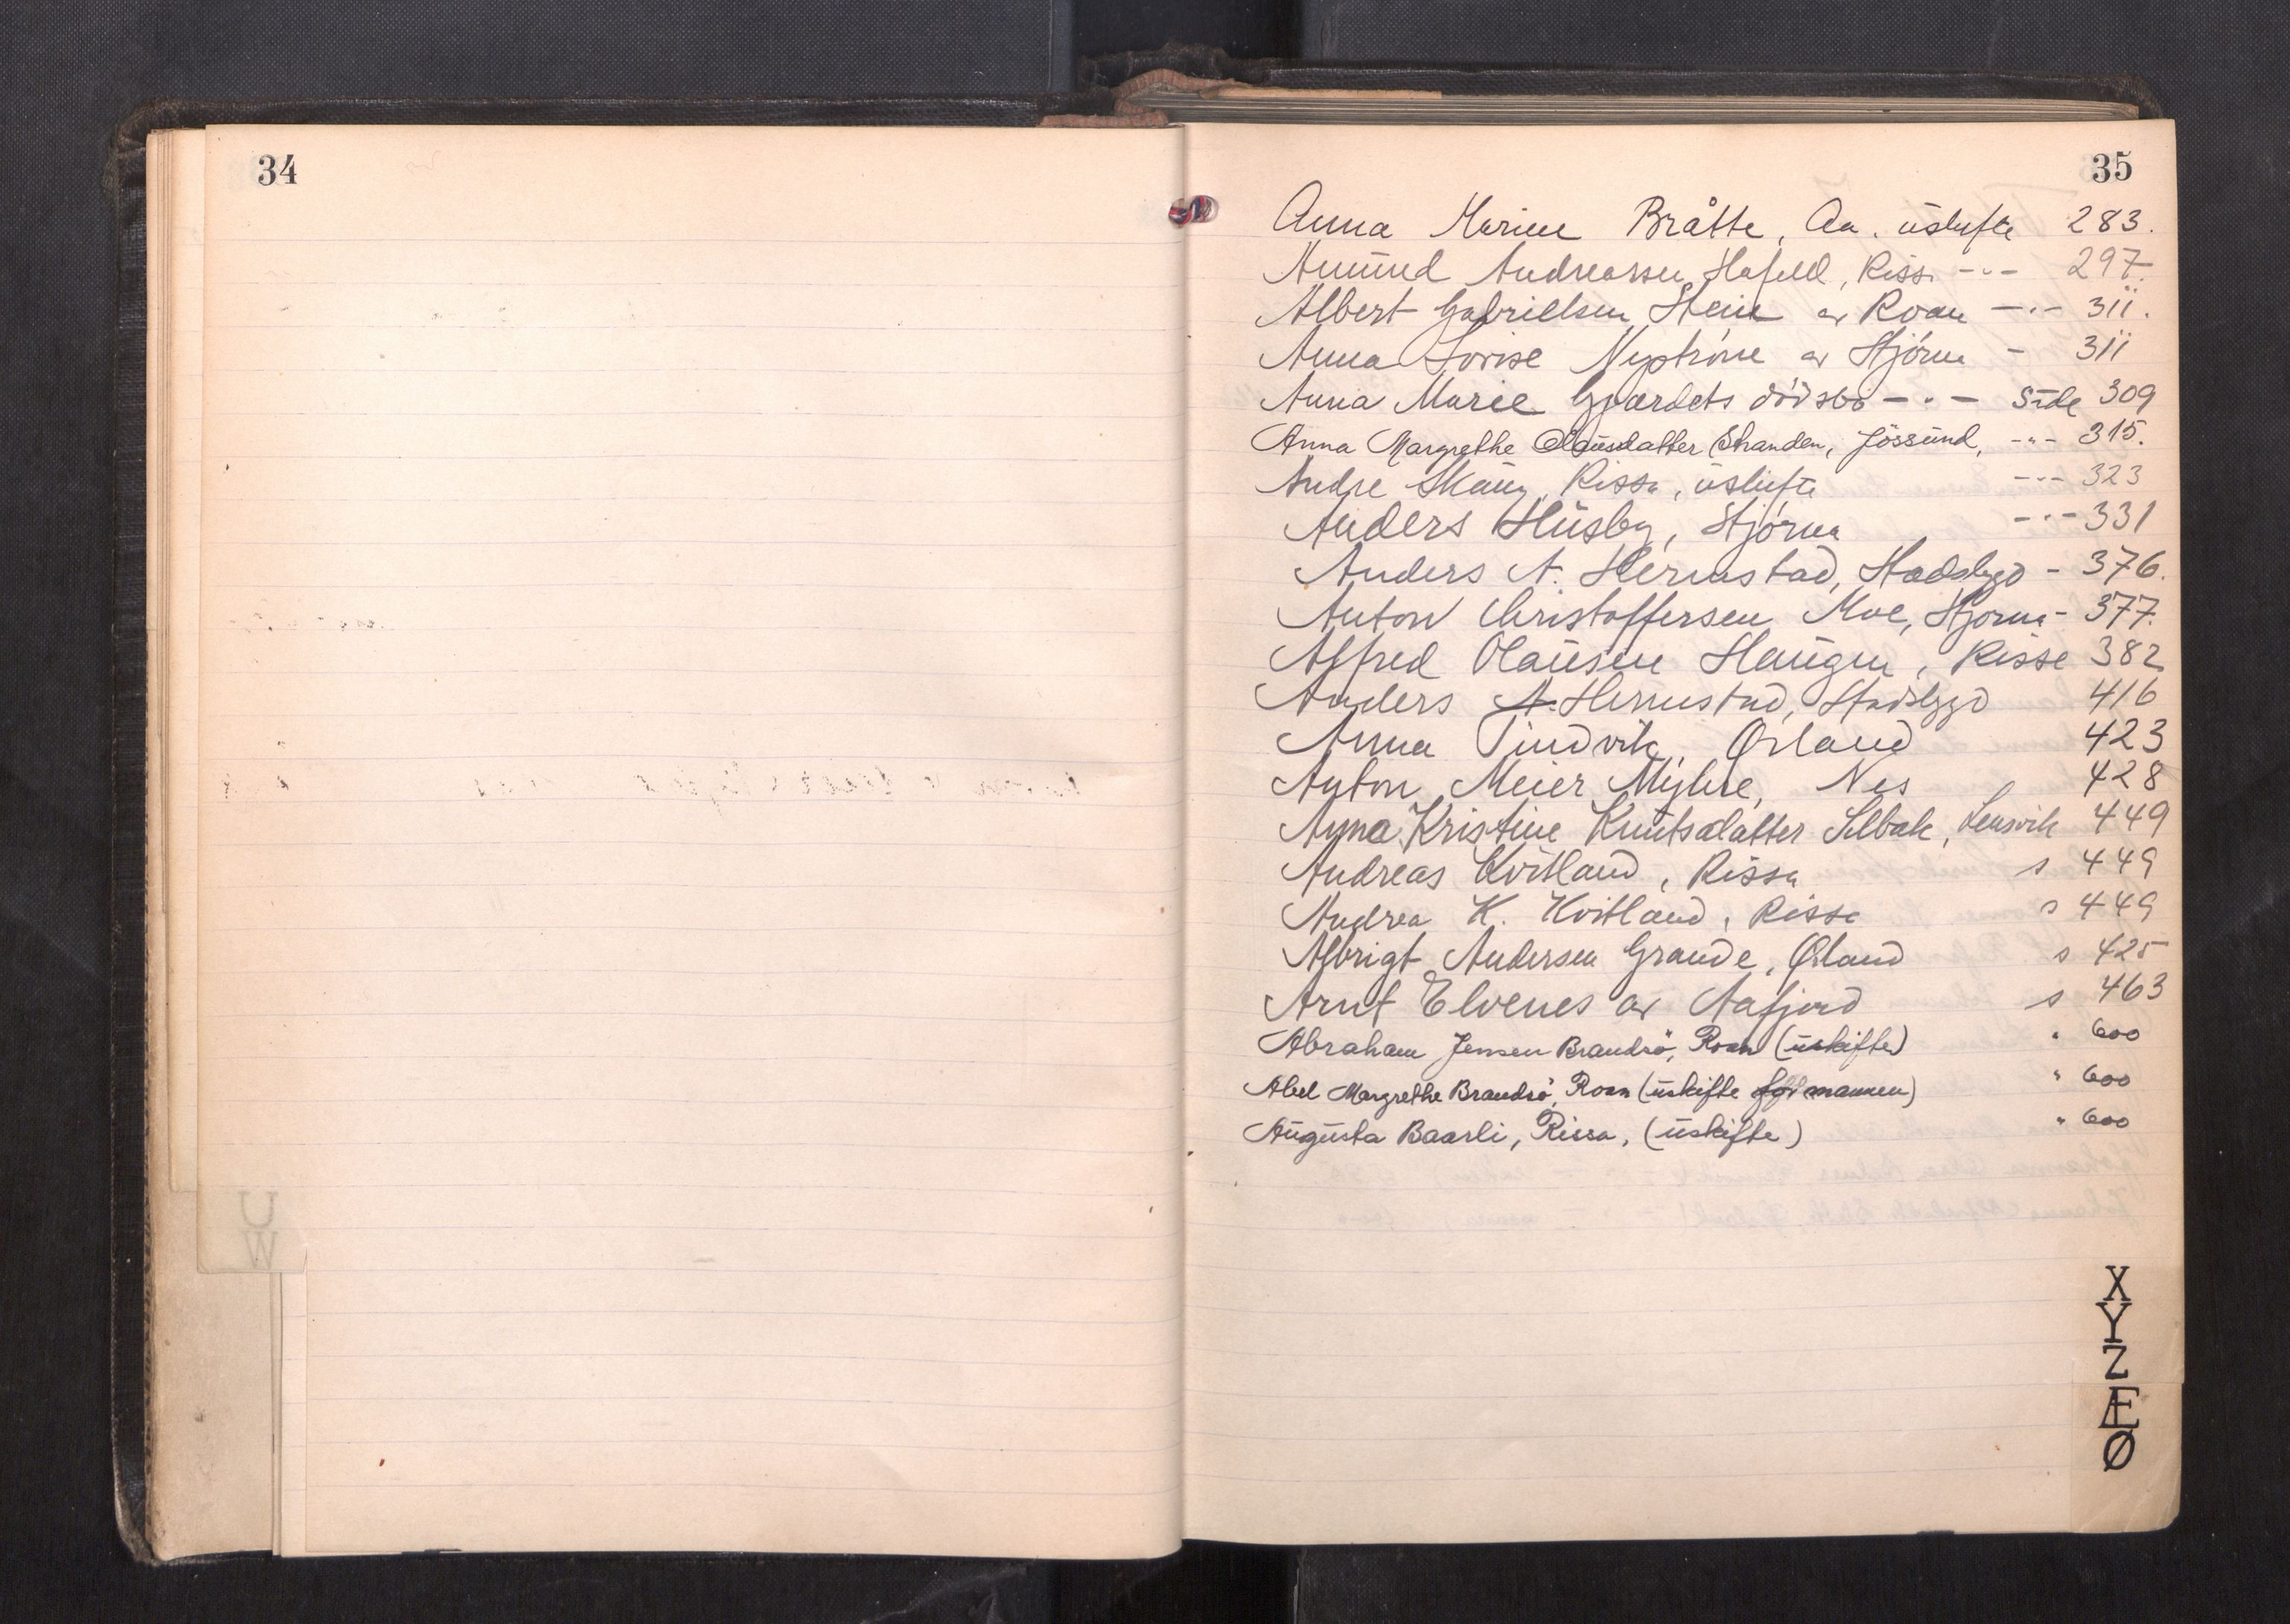 34
35
Anna Marine Bråtte, Aa. uskifte 283.
Amund Andreassen Hafeld, Rissa -"- 297.
Albert Gabrielsen Stein av Roan -"- 311.
Anna Lovise Nyptrøne av Stjørna - 311
Anna Marie Gjærdets dødsbo -"- Side 309
Anna Margrethe Olausdatter Stranden, Jössund, -"- 315.
Andre Skaug, Rissa, uskifte -"- 323
Anders Husby, Stjørna -"- 331
Anders A. Hermstad, Stadsbygd - 376.
Anton Christoffersen Moe, Stjørna - 377.
Alfred Olausen Haugen, Rissa 382
Anders A. Hermstad, Stadsbygd 416
Anna Tindvik, Ørland 423
Anton Meier Myhre, Nes 428
Anna Kristine Knutsdatter Selbak, Lensvik 449
Andreas Kvitland, Rissa s 449
Andrea K. Kvitland, Rissa s 449
Albrigt Andersen Grande, Ørland s 425
Arnt Elvenes av Aafjord s 463
Abraham Jensen Brandsö, Roan (uskifte) " 600
Abel Margrethe Brandsö, Roan (uskifte mannen) " 600
Augusta Baarli, Rissa, (uskifte) " 600
U
W
X
Y
Z
Æ
Ø